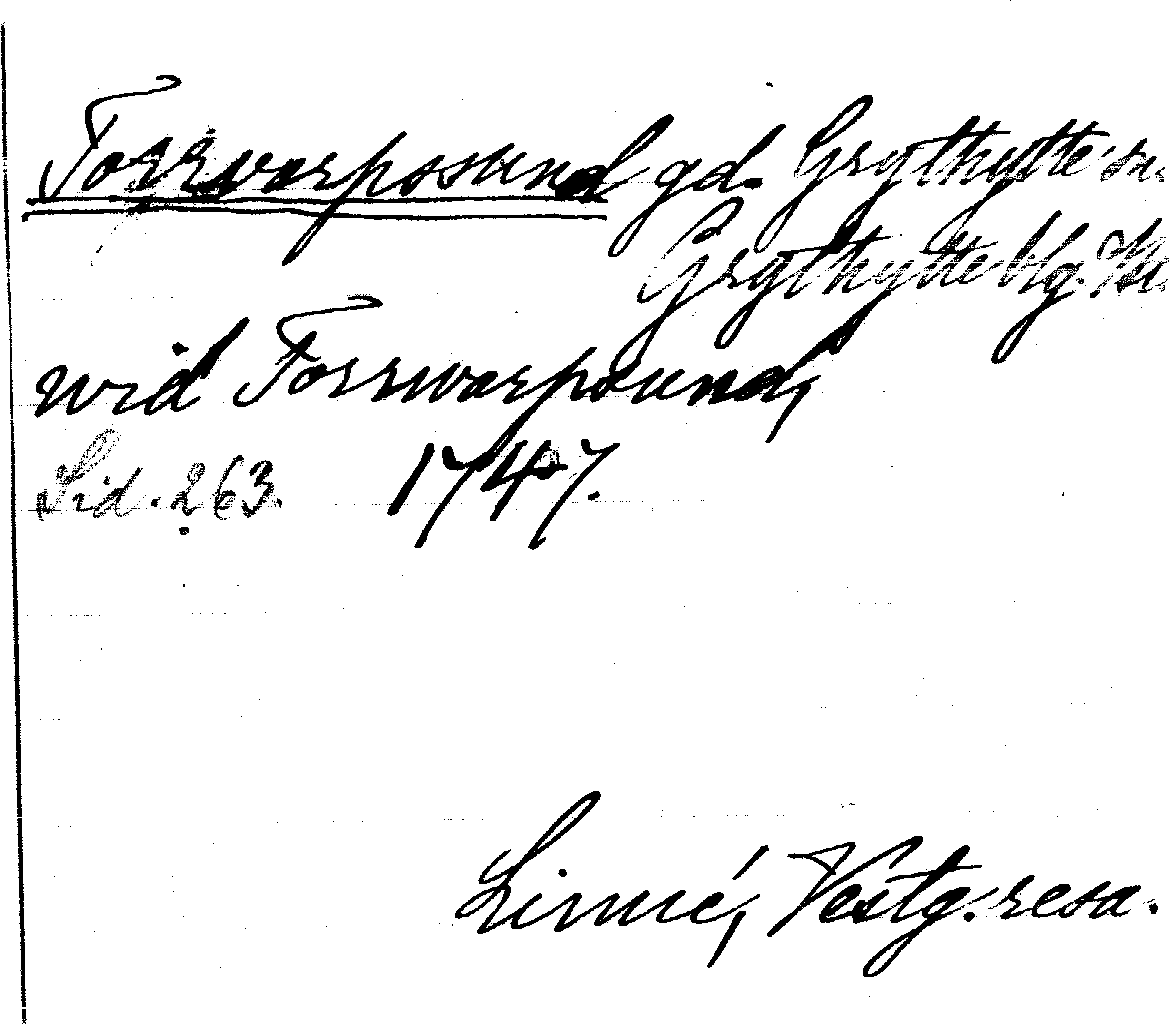 Torrvarpsund gd. Grythytte sn.
Grythytte bg.
wid Torrwarpsund,
Sid. 263. 1747.
Linné, Västg. resa.